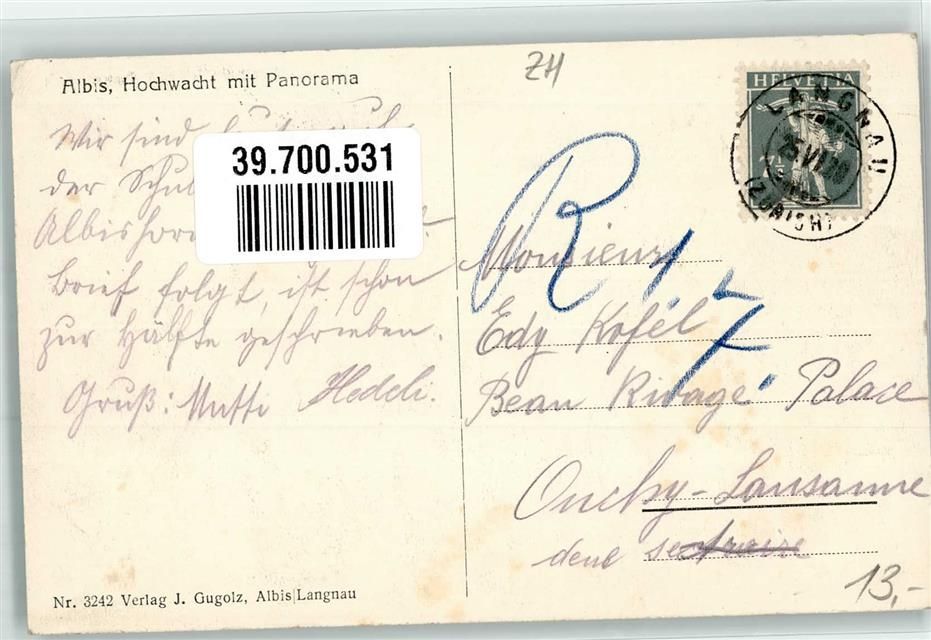 Albis, Hochwacht mit Panorama
Wir sind
der
39.700.531
Brief folgt, ist schon
zur Hälfte geschrieben.
Gruß: Mutti Hedeli.
Nr. 3242 Verlag J. Gugolz, Albis Langnau
ZH
HELVETIA
7½
LANGNAU
(ZÜRICH)
R 17
Monsieur
Edy Kofél
Beau Rivage Palace
Ouchy-Lausanne
13,-